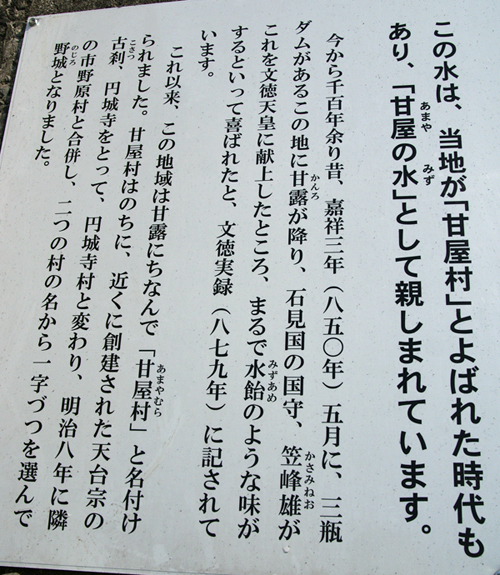 この水は、当地が「甘屋村」とよばれた時代も
あり、「甘屋の水」として親しまれています。
あまや
みず
今から千百年余り昔、嘉祥三年（八五〇年）五月に、三瓶
ダムがあるこの地に甘露が降り、石見国の国守、笠峰雄が
かんろ
かさみねお
これを文徳天皇に献上したところ、まるで水飴のような味が
みずあめ
するといって喜ばれたと、文徳実録（八七九年）に記されて
います。
これ以来、この地域は甘露にちなんで「甘屋村」と名付け
あまやむら
られました。甘屋村はのちに、近くに創建された天台宗の
古刹、円城寺をとって、円城寺村と変わり、明治八年に隣
こさつ
の市野原村と合併し、二つの村の名から一字づつを選んで
野城となりました。
のじろ